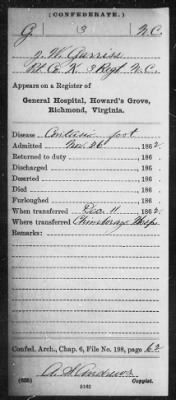 (CONFEDERATE.)
G 3 N.C.
Pvt. Co. K. 3 Regt. N.C.
Appears on a Register of
General Hospital, Howard's Grove,
Richmond, Virginia.
Disease Contusio foot
Admitted Nov. 26, 186 2.
Returned to duty , 186 .
Discharged , 186 .
Deserted , 186 .
Died , 186 .
Furloughed , 186 .
When transferred Dec. 11, 186 2.
Where transferred Chimborazo Hosp.
Remarks:
Confed. Arch., Chap. 6, File No. 198, page 62
Andrews
Copyist.